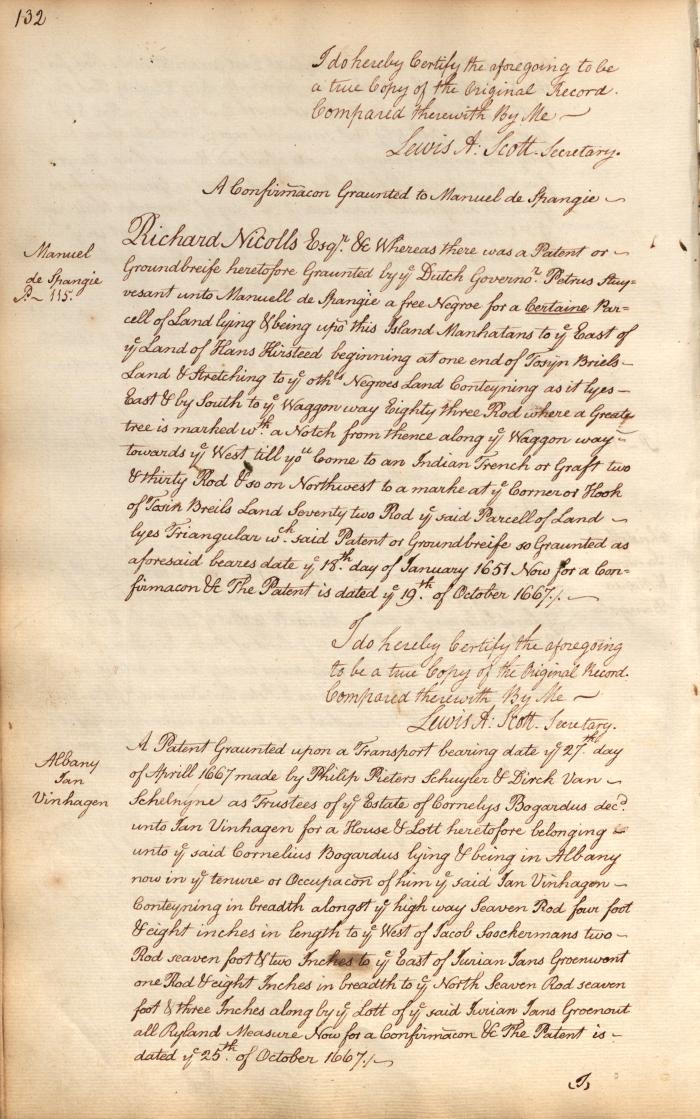 132
I do hereby Certify the aforegoing to be
a true Copy of the Original Record.
Compared therewith By Me ~
Lewis A: Scott. Secretary.
A Confirmãcon Graunted to Manuel de Spangie ~
Manuel
de Spangie
P~ 115.
Richard Nicolls Esqr. &c Whereas there was a Patent or ~
Groundbreife heretofore Graunted by ye Dutch Governor. Petrus Stuy=
vesant unto Manuell de Spangie a free Negroe for a Certaine Par=
cell of Land lying & being upõ this Island Manhatans to ye East of
ye Land of Hans Hirsteed beginning at one end of Tosyn Briels ~
Land & Stretching to ye othrs Negroes Land Conteyning as it lyes ~
East & by South to ye Waggon way Eighty three Rod where a Greate
tree is marked wth. a Notch from thence along ye Waggon way ~
towards ye West till you Come to an Indian Trench or Graft two
& thirty Rod & so on Northwest to a marke at ye Corner or Hook
of Tosin Breils Land Seventy two Rod ye said Parcell of Land ~
lyes Triangular wch. said Patent or Groundbreife so Graunted as
aforesaid beares date ye 18th. day of January 1651 Now for a Con=
firmacon &c The Patent is dated ye 19th. of October 1667./. ~
I do hereby Certify the aforegoing
to be a true Copy of the Original Record.
Compared therewith By Me ~
Lewis A: Scott. Secretary.
Albany
Jan
Vinhagen
A Patent Graunted upon a Transport bearing date ye 27th. day
of Aprill 1667 made by Philip Pieters Schuyler & Dirck Van ~
Schelnyne as Trustees of ye Estate of Cornelys Bogardus decd.
unto Jan Vinhagen for a House & Lott heretofore belonging ~
unto ye said Cornelius Bogardus lying & being in Albany
now in ye tenure or Occupacon of him ye said Jan Vinhagen ~
Conteyning in breadth alongst ye high way Seaven Rod four foot
& eight inches in length to ye West of Jacob Loockermans two ~
Rod seaven foot & two Inches to ye East of Jurian Jans Groenwont
one Rod & eight Inches in breadth to ye North Seaven Rod seaven
foot & three Inches along by ye Lott of ye said Jurian Jans Groenout
all Ryland Measure Now for a Confirmãcon &c The Patent is ~
dated ye 25th. of October 1667./. ~